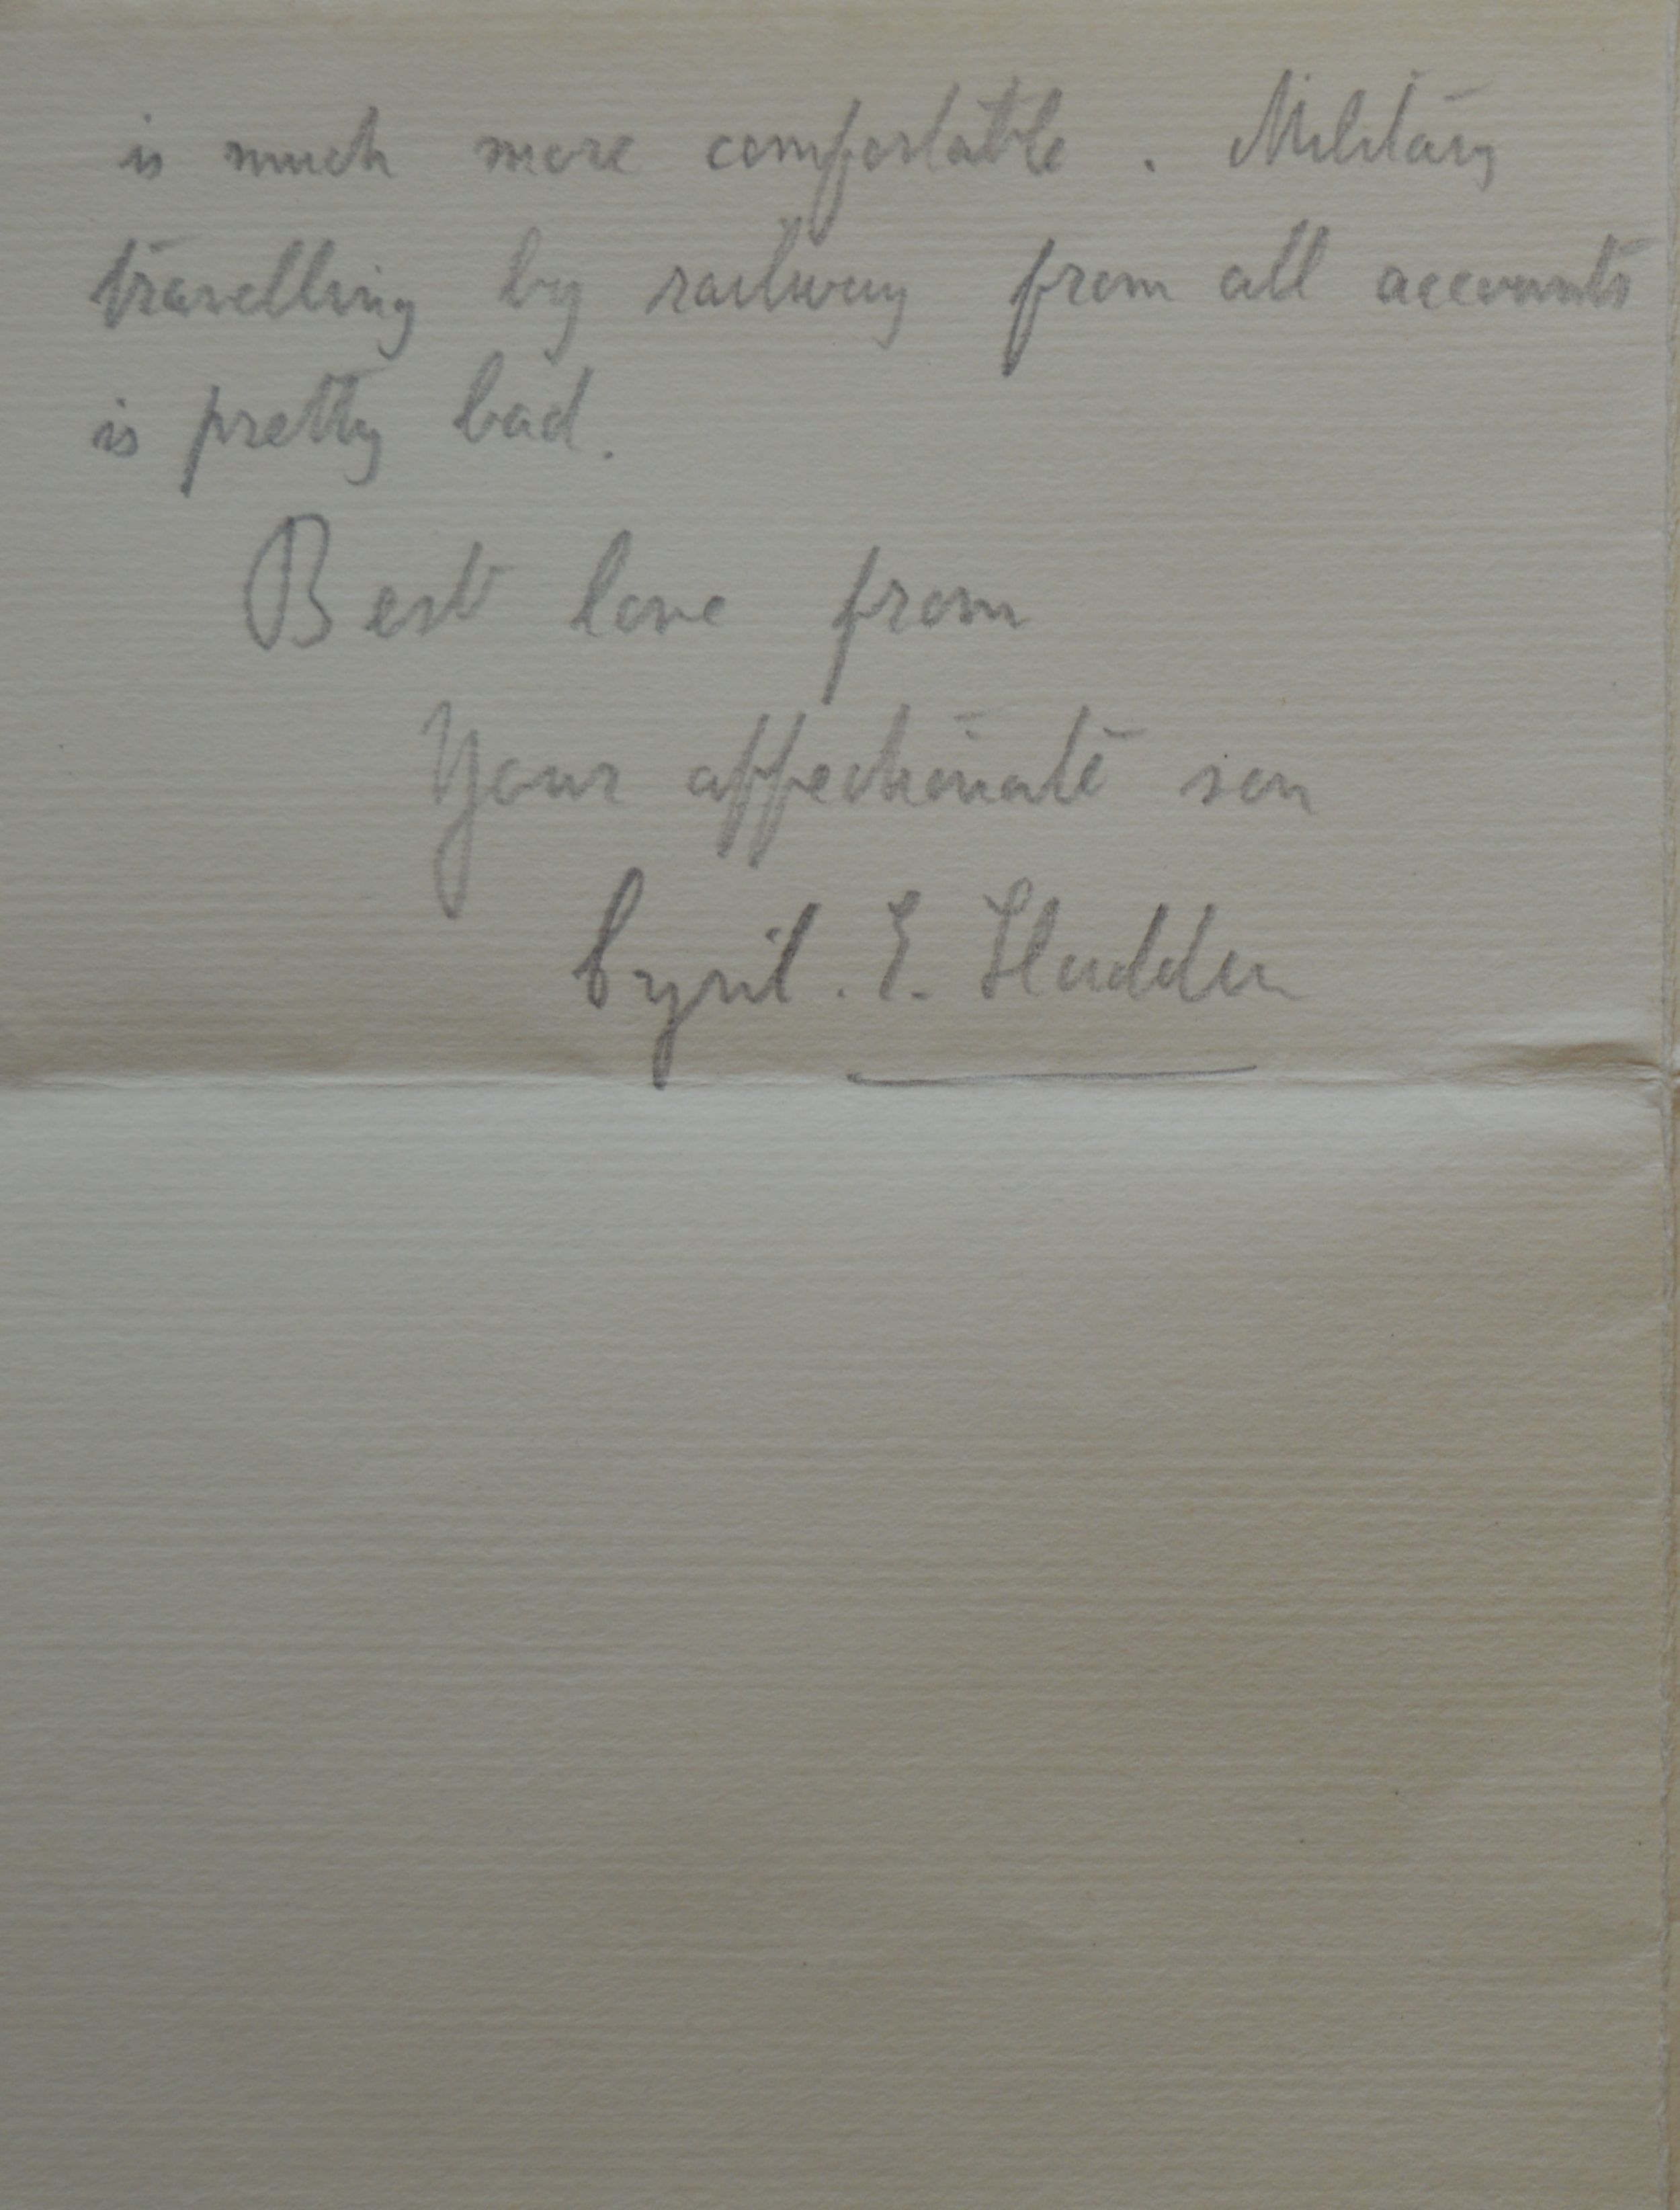 is much more comfortable. Military
travelling by railway from all accounts
is pretty bad.
Best love from
Your affectionate son
Cyril. E. Sladden